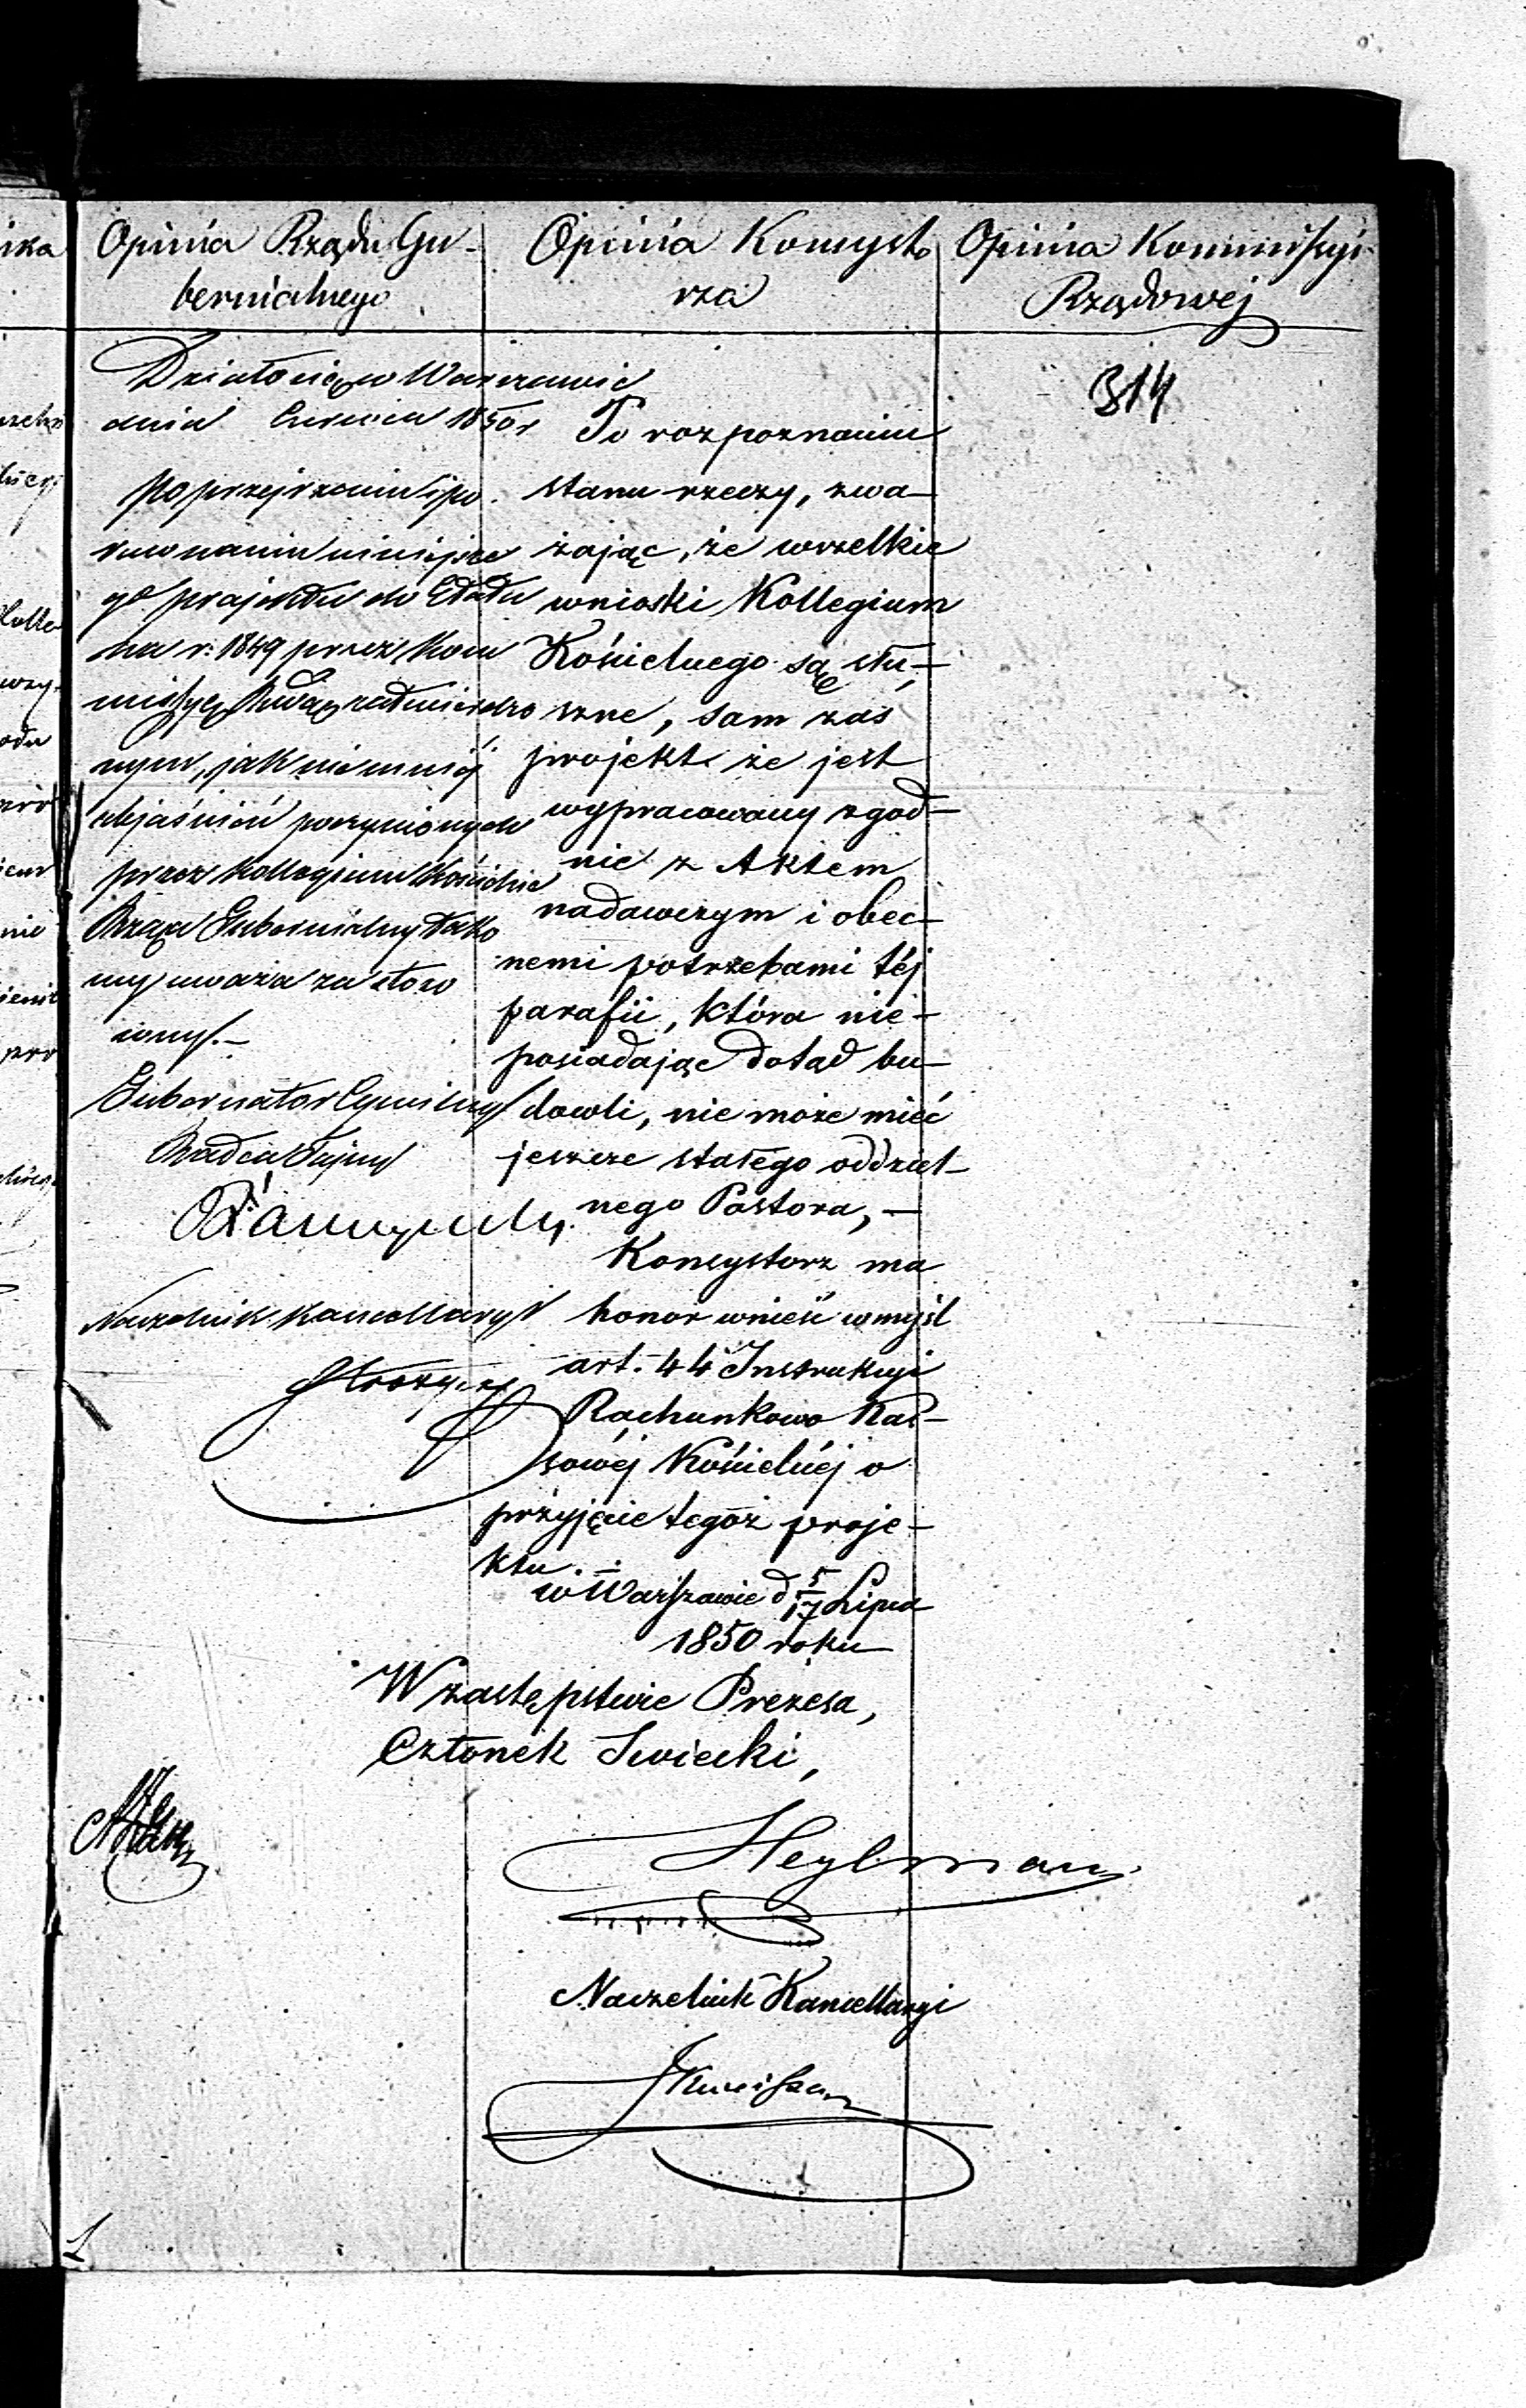 Opinia Rządu Gu-
bernialnego
Działo się w Warszawie
dnia Czerwca 1850 r
Po przejrzeniu i po
równaniu niniejsze
go projektu do Etatu
na r. 1849 przez Kom
missyę Rządz. zatwierdzo
nym, jak niemniej
objaśnień poczynionych
przez Kollegium Kościelne
Rząd Gubernialny tako
wy uważa za stoso
wny.-
Gubernator Cywilny
Radca Tajny
Naczelnik Kancellaryi
Opinia Konsysto
rza
Po rozpoznaniu
stanu rzeczy, zwa-
żając, że wszelkie
wnioski Kollegium
Kościelnego są słu-
szne, sam zaś
projekt że jest
wypracowany zgod-
nie z Aktem
nadawczym i obec-
nemi potrzebami téj
parafii, która nie-
posiadając dotąd bu-
dowli, nie może mieć
jeszcze stałego oddziel-
nego Pastora, —
Konsystorz ma
honor wnieść w myśl
art. 44 Instrukcyi
Rachunkowo Kas-
sowéj Kościelnéj o
przyjęcie tegoż proje-
ktu.-
w Warszawie d 5/17 Lipca
1850 roku
W zastępstwie Prezesa,
Członek Swiecki,
Heylman
Naczelnik Kancellaryi
Opinia Kommissyi
Rządowej
314